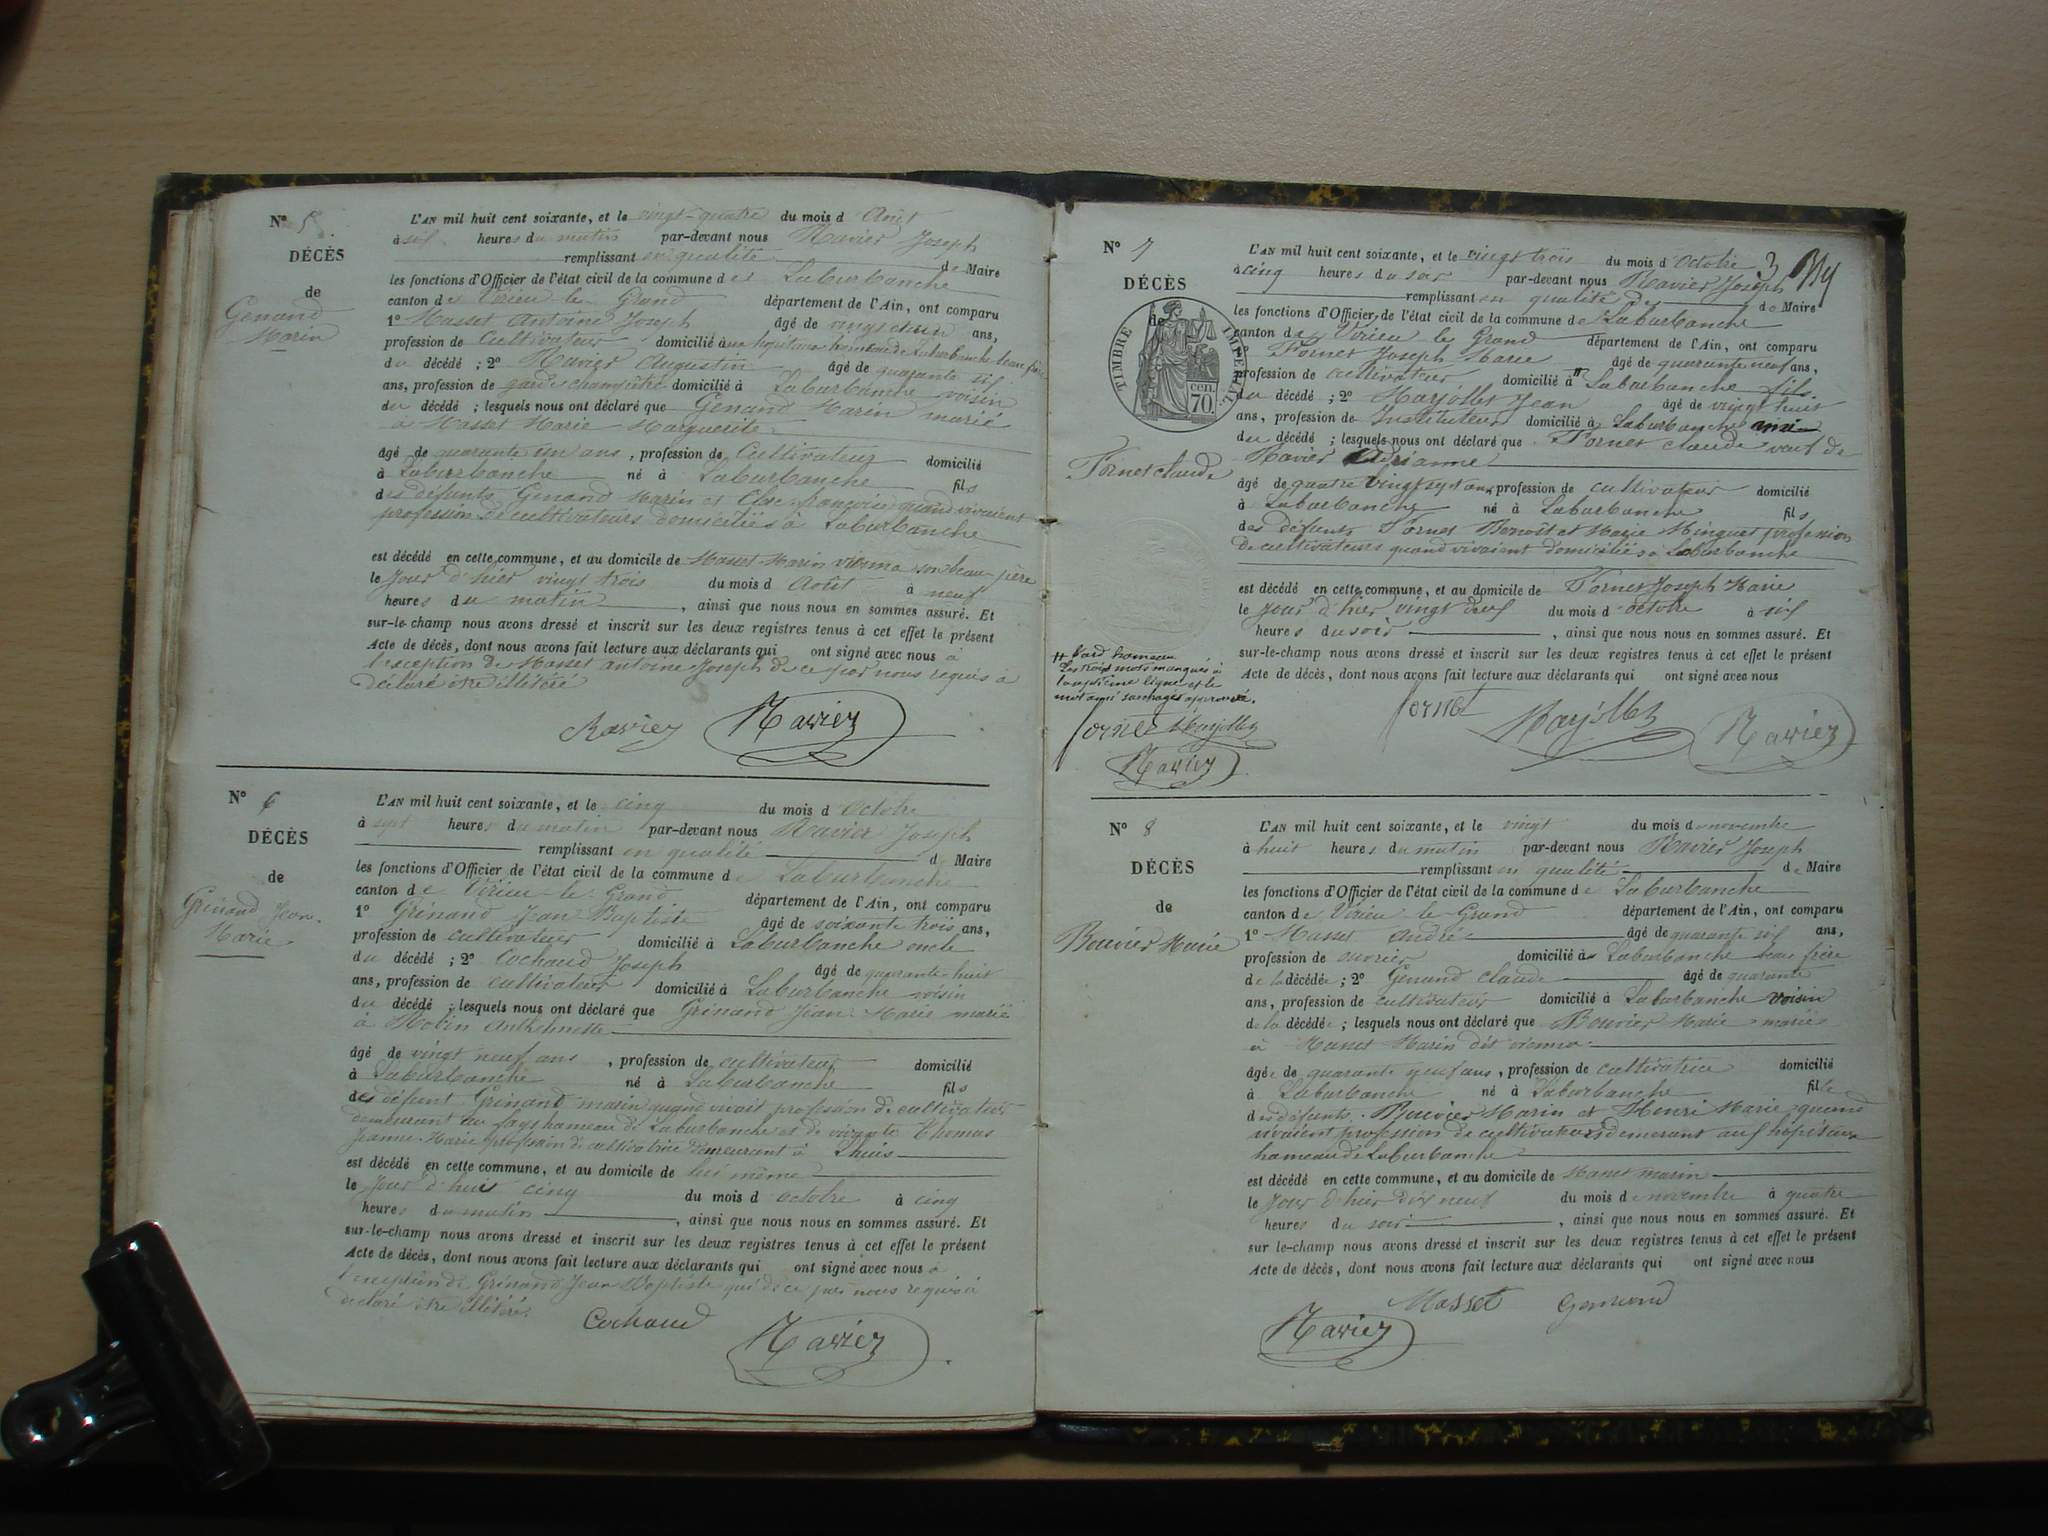 N° 5
DÉCÈS
de
Genand
Marin
L'AN mil huit cent soixante, et le vingt-quatre du mois d Août
à six heures du matin par-devant nous Ravier Joseph
remplissant en qualité de Maire
les fonctions d'Officier de l'état civil de la commune de Laburbanche
canton de Virieu le Grand département de l'Ain, ont comparu
1° Masset Antoine Joseph âgé de vingt ans,
profession de Cultivateur domicilié à hameau de Laburbanche beau frère
du décédé ; 2° Ravier Augustin âgé de quarante six
ans, profession de garde champêtre domicilié à Laburbanche voisin
du décédé ; lesquels nous ont déclaré que Genand Marin marié
à Masset Marie Marguerite
âgé de quarante un ans, profession de Cultivateur domicilié
à Laburbanche né à Laburbanche fils
des défunts Genand Marin et françoise quand vivaient
profession de cultivateurs domiciliés à Laburbanche
est décédé en cette commune, et au domicile de Masset Marin vienna son beau-père
le Jour d'hier vingt trois du mois d Août à neuf
heures du matin, ainsi que nous nous en sommes assuré. Et
sur-le-champ nous avons dressé et inscrit sur les deux registres tenus à cet effet le présent
Acte de décès, dont nous avons fait lecture aux déclarants qui ont signé avec nous à
l'exception de Masset antoine Joseph de ce par nous requis a
déclaré être illitéré
Ravier Ravier
N° 6
DÉCÈS
de
Grinand Jean
Marie
L'AN mil huit cent soixante, et le cinq du mois d Octobre
à sept heures du matin par-devant nous Ravier Joseph
remplissant en qualité d Maire
les fonctions d'Officier de l'état civil de la commune de Laburbanche
canton de Virieu le Grand département de l'Ain, ont comparu
1° Grinand Jean Baptiste âgé de soixante trois ans,
profession de cultivateur domicilié à Laburbanche oncle
du décédé ; 2° Cochaud Joseph âgé de quarante-huit
ans, profession de cultivateur domicilié à Laburbanche voisin
du décédé ; lesquels nous ont déclaré que Grinand Jean Marie marié
à Robin Anthelmette
âgé de vingt neuf ans, profession de cultivateur domicilié
à Laburbanche né à Laburbanche fils
des défunt Grinand marin quand vivait profession de cultivateur
demeurant au fays hameau de Laburbanche et de vivante Thomas
Jeanne-Marie profession de cultivatrice demeurant à Lhuis
est décédé en cette commune, et au domicile de lui même
le Jour d'hui cinq du mois d octobre à cinq
heures du matin, ainsi que nous nous en sommes assuré. Et
sur-le-champ nous avons dressé et inscrit sur les deux registres tenus à cet effet le présent
Acte de décès, dont nous avons fait lecture aux déclarants qui ont signé avec nous à
l'exception de Grinand Jean Baptiste qui de ce par nous requis a
déclaré être illitéré
Cochaud Ravier
3
N° 7
DÉCÈS
de
TIMBRE IMPÉRIAL
70 cen.
Fornet claude
L'AN mil huit cent soixante, et le vingt trois du mois d'Octobre
à cinq heures du soir par-devant nous Ravier Joseph
remplissant en qualité de de Maire
les fonctions d'Officier de l'état civil de la commune de Laburbanche
canton de Virieu le Grand département de l'Ain, ont comparu
1° Fornet Joseph Marie âgé de quarante neuf ans,
profession de cultivateur domicilié à # Laburbanche fils
du décédé ; 2° Marjollet Jean âgé de vingt huit
ans, profession de Instituteur domicilié à Laburbanche ami
du décédé ; lesquels nous ont déclaré que Fornet claude veuf de
Ravier
âgé de quatre vingt sept ans, profession de cultivateur domicilié
à Laburbanche né à Laburbanche fils
des défunts Fornet Benoît et Marie Minguet profession
de cultivateurs quand vivaient domiciliés à Laburbanche
est décédé en cette commune, et au domicile de Fornet Joseph Marie
le Jour d'hier vingt deux du mois d octobre à six
heures du soir, ainsi que nous nous en sommes assuré. Et
sur-le-champ nous avons dressé et inscrit sur les deux registres tenus à cet effet le présent
Acte de décès, dont nous avons fait lecture aux déclarants qui ont signé avec nous
# hameau
Les trois mots manqués à
la septième ligne et le
mot ami surchargé approuvés.
Fornet Marjollet
Ravier
Fornet Marjollet Ravier
N° 8
DÉCÈS
de
Bouvier Marie
L'AN mil huit cent soixante, et le vingt du mois de novembre
à huit heures du matin par-devant nous Ravier Joseph
remplissant en qualité de Maire
les fonctions d'Officier de l'état civil de la commune de Laburbanche
canton de Virieu le Grand département de l'Ain, ont comparu
1° Masset André âgé de quarante six ans,
profession de ouvrier domicilié à Laburbanche beau frère
de la décédée ; 2° Genand claude âgé de quarante
ans, profession de cultivateur domicilié à Laburbanche voisin
de la décédée ; lesquels nous ont déclaré que Bouvier Marie mariée
à Masset Marin dit vienna
âgée de quarante neuf ans, profession de cultivatrice domicilié
à Laburbanche né à Laburbanche fille
des défunts Bouvier Marin et Henri Marie quand
vivaient profession de cultivateurs demeurant aux hôpitaux
hameau de Laburbanche
est décédé en cette commune, et au domicile de Masset marin
le Jour d'hier dix neuf du mois de novembre à quatre
heures du soir, ainsi que nous nous en sommes assuré. Et
sur le champ nous avons dressé et inscrit sur les deux registres tenus à cet effet le présent
Acte de décès, dont nous avons fait lecture aux déclarants qui ont signé avec nous
Masset Genand
Ravier